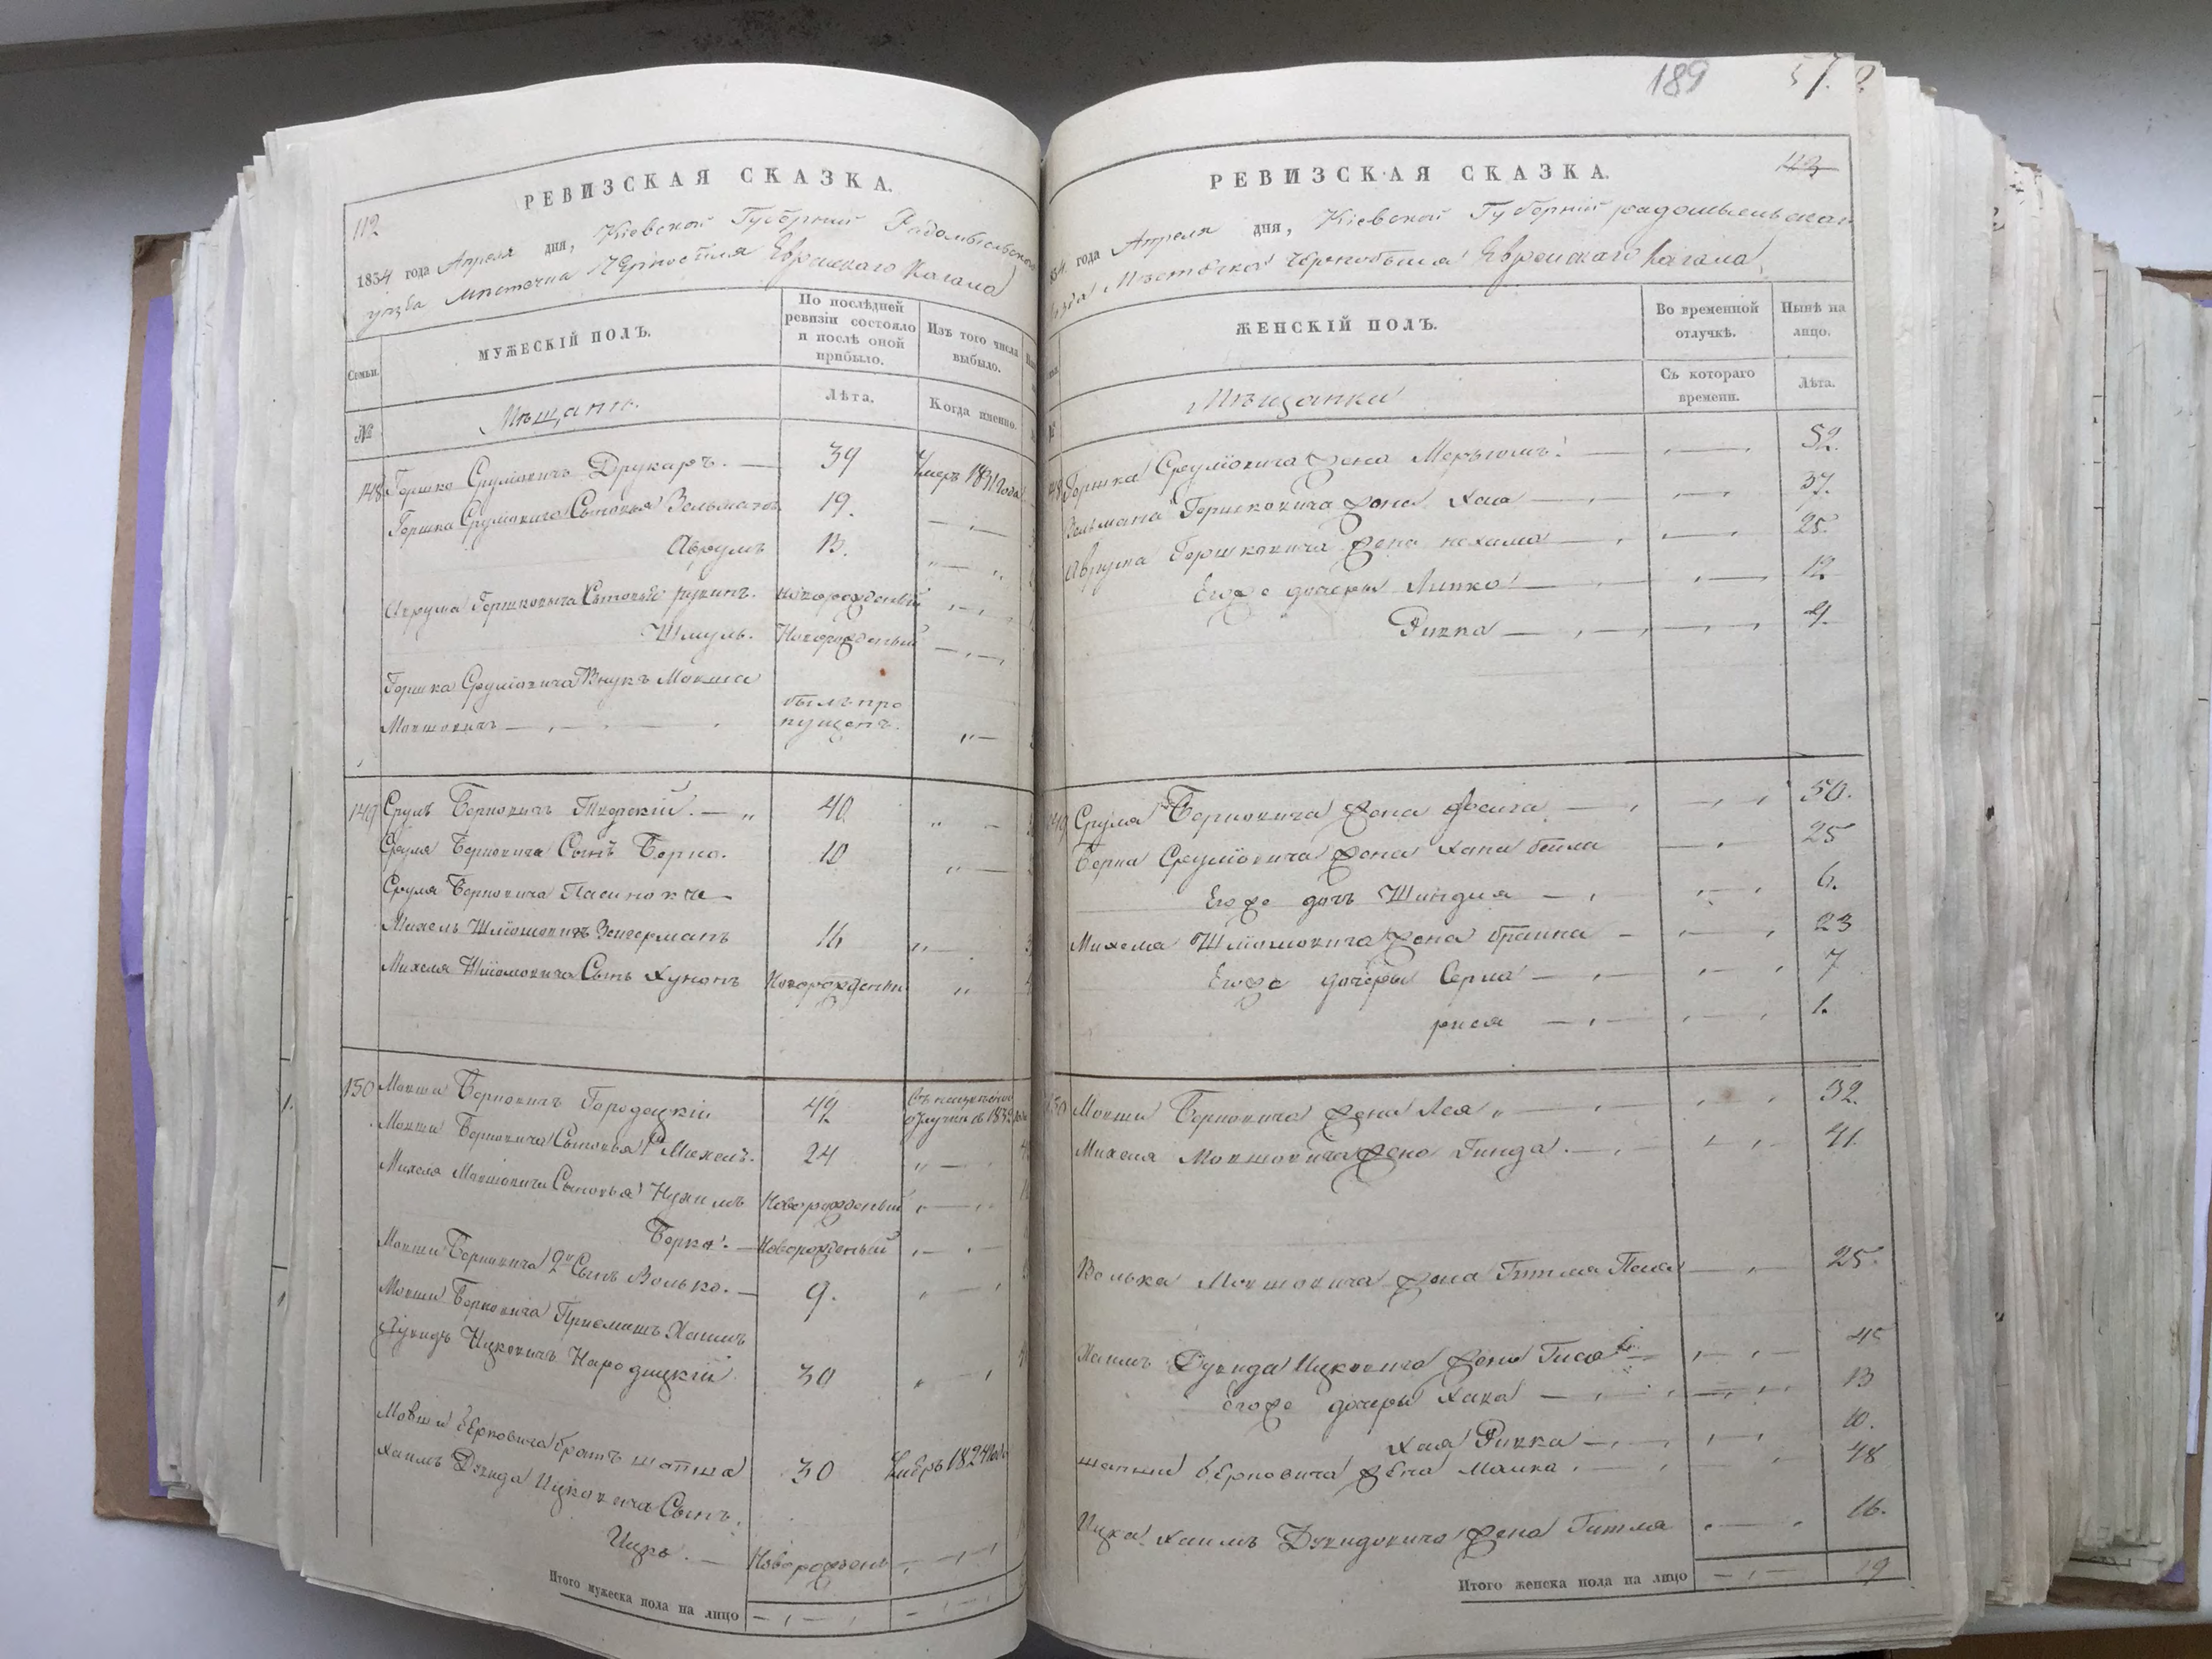 РЕВИЗСКАЯ СКАЗКА.
112
1834 года Апреля дня, Кіевской Губерніи Радомысльскаго
уѣзда мѣстечка Чернобыля Еврейскаго Кагала
Семьи.
МУЖЕСКІЙ ПОЛЪ.
По послѣдней ревизіи состояло и послѣ оной прибыло.
Изъ того числа выбыло.
№
Мѣщани.
Лѣта.
Когда именно.
148 Гершко Сруліовичъ Друкаръ. 39 Умеръ 1831 года
Гершка Сруліовича Сыновья Зельманъ 19.
Аврумъ 13.
Аврума Гершковича Сыновья рувинъ. новорожденый
Шмуль. Новорожденый
Гершка Сруліовича Внукъ Мовша
Мовшовичъ былъ пропущенъ.
149 Сруль Берковичъ Тверскій. 40
Сруля Берковича Сынъ Берко. 10
Сруля Берковича Пасинокъ
Михель Шліомовичъ Зингерманъ 16
Михеля Шліомовича Сынъ Хунонъ Новорожденый
150 Мовша Берковичъ Городецкій 49
отлучки с 1832
Мовши Берковича Сыновья 1й Михель. 24
Михеля Мовшовича Сыновья Нухимъ Новорожденый
Берко. Новорожденый
Мовши Берковича 2й Сынъ Волько. 9.
Мовши Берковича Приемышъ Хаимъ
Дувидъ Ицковичъ Народицкій 30
Мовши Берковича братъ шапша 30 Умеръ 1824 года
Хаимъ Дувида Ицковича Сынъ.
Ицко. Новорожденъ
Итого мужеска пола на лицо
189
57.
РЕВИЗСКАЯ СКАЗКА.
113
года Апреля дня, Кіевской Губерніи радомысльскаго
Мѣстечка Чернобыля Еврейскаго Кагала
ЖЕНСКІЙ ПОЛЪ.
Во временной отлучкѣ.
Нынѣ на лицо.
Мѣщанки
Съ котораго времени.
Лѣта.
Гершка Сруліовича жена Мерьямъ. 52.
Зельмана Гершковича жена Хая 37.
Аврума Гершковича жена нехама 25.
Егоже дочеры Липка 12
Ривка 4.
149 Сруля Берковича жена фейга 50.
Берка Сруліовича жена Хана бейла 25
Егоже дочъ Шиндля 6.
Михеля Шліомовича жена браина 23
Егоже дочеры Серла 7
рися 1.
150 Мовши Берковича жена Лея 32.
Михеля Мовшовича жена Гинда. 41.
Волька Мовшовича жена Гитля Песя 25.
Хаимъ Дувида Ицковича жена 45
Егоже дочеры Хана 13
Хая Ривка 10.
шапши берковича жена Малка. 48
Ицка Хаимъ Дувидовича жена Гитля 16.
Итого женска пола на лицо 19